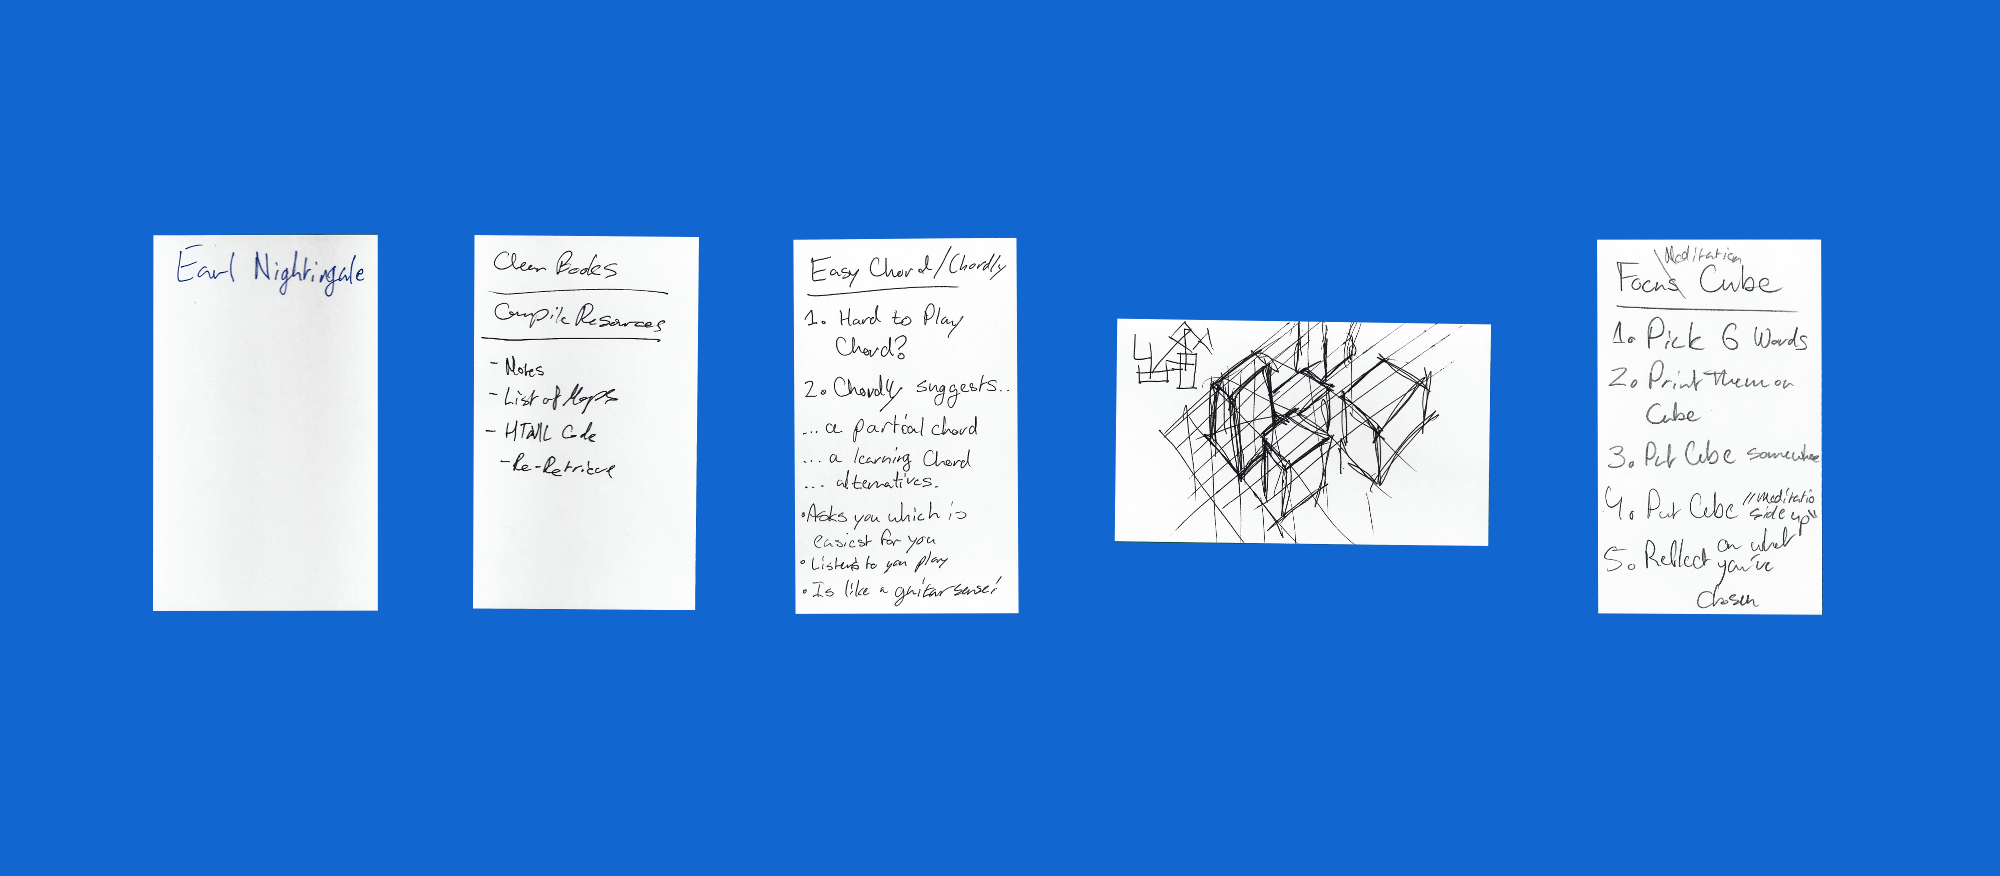 Earl Nightingale
Clean Bodes
Compile Resources
- Notes
- List of Maps
- HTML Code
- Re-Retrieve
Easy Chord/Chordly
1. Hard to Play
Chord?
2. Chordly suggests...
... a partial chord
... a learning Chord
... alternatives.
• Asks you which is
easiest for you
• Listens to you play
• Is like a guitar sensei
Meditation
Focus Cube
1. Pick 6 Words
2. Print Them on
Cube
3. Put Cube somewhere
4. Put Cube "Meditatio
side up"
5. Reflect on what
you've
chosen